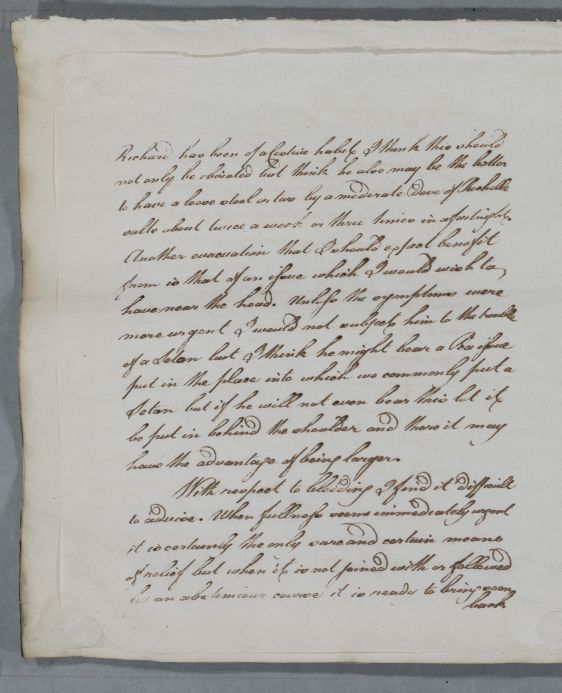 Richard has been of a Costive habit I think this should
not only be obviated but think he also may be the better
to have a loose stool or two by a moderate Dose of Rochelle
salts about twice a week or three times in a fortnight.
Another evacuation that I should expect benefit
from is that of an issue which I would wish to
have near the head. Unless the symptoms were
more urgent I would not subject him to the trouble
of a Setan but I think he might bear a Pea issue
put in the place into which we commonly put a
Setan but if he will not even bear this let it
be put in behind the shoulder and there it may
have the advantage of being larger.
With respect to bleeding I find it difficult
to advise. When fullness seems immediately urgent
it is certainly the only sure and certain means
of relief but when it is not joined with or followed
by an abstemious course it is ready to bring soon
back